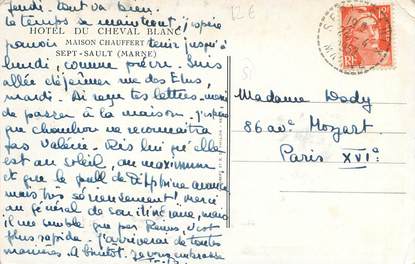 Jeudi. Tout va bien.
Le temps se maintient, j'espère
pouvoir tenir jusqu'à
HÔTEL DU CHEVAL BLANC
MAISON CHAUFFERT
SEPT-SAULT (MARNE)
lundi, comme prévu. Suis
allée déjeuner rue des
mardi. Ai reçu tes lettres. merci
de passer à la maison. J'espère
que chambon ne reconnaitra
pas Valérie. Dis lui qu'elle
est au soleil, au maximum
et que le pull de Delphine avance
mais très sérieusement! Merci
au général de son itinéraire, mais
il me semble que par Reims, c'est
plus rapide. J'arriverai de toutes
manières. A bientôt. Je vous embrasse
12 €
RF
Madame Dody
86 av. Mozart
Paris XVIe